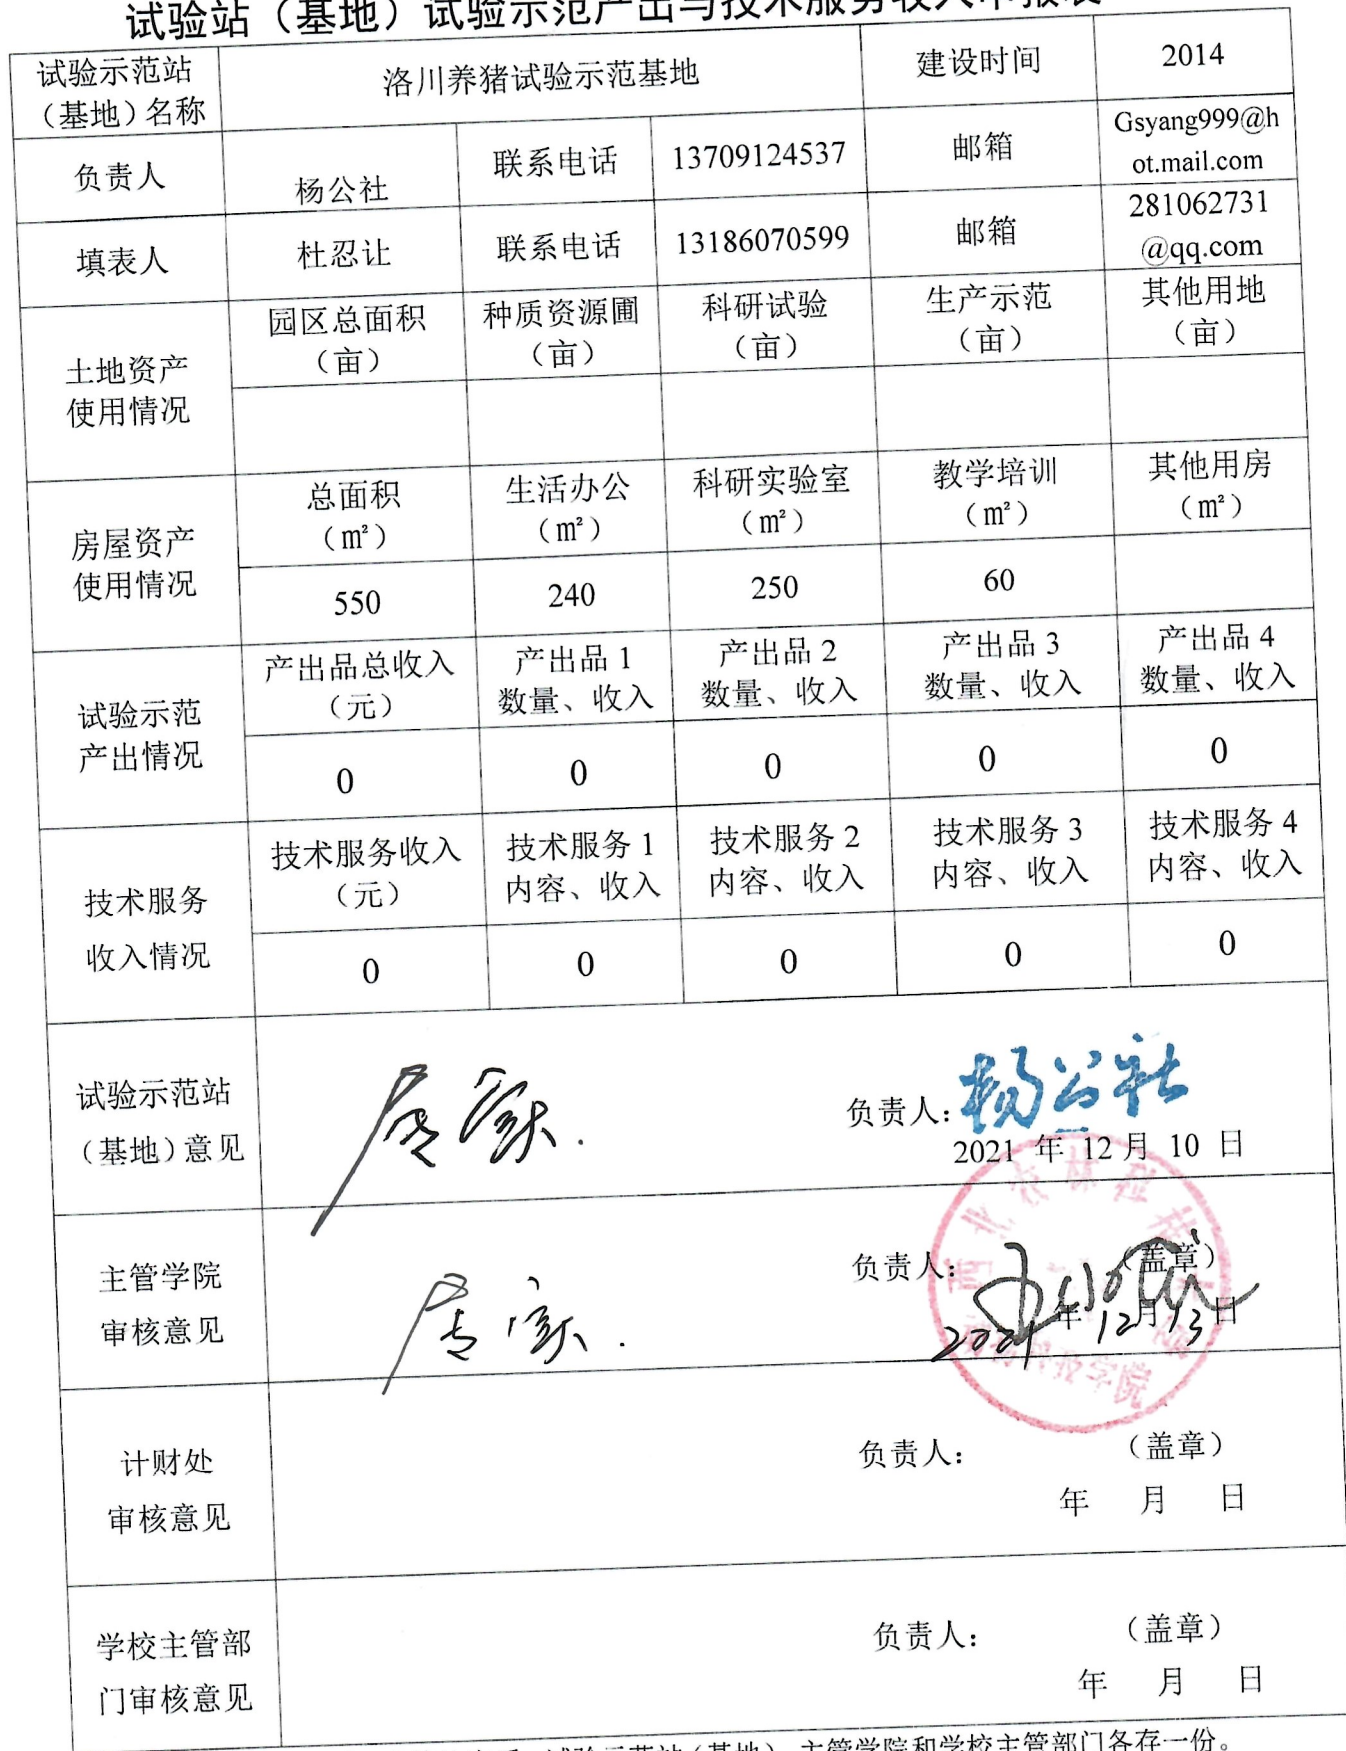 试验站（基地）试验示范产出与技术服务收入申报表
试验示范站
（基地）名称
洛川养猪试验示范基地
建设时间
2014
负责人
杨公社
联系电话
13709124537
邮箱
Gsyang999@h
ot.mail.com
填表人
杜忍让
联系电话
13186070599
邮箱
281062731
@qq.com
土地资产
使用情况
园区总面积
（亩）
种质资源圃
（亩）
科研试验
（亩）
生产示范
（亩）
其他用地
（亩）
房屋资产
使用情况
总面积
（㎡）
生活办公
（㎡）
科研实验室
（㎡）
教学培训
（㎡）
其他用房
（㎡）
550
240
250
60
试验示范
产出情况
产出品总收入
（元）
产出品 1
数量、收入
产出品 2
数量、收入
产出品 3
数量、收入
产出品 4
数量、收入
0
0
0
0
0
技术服务
收入情况
技术服务收入
（元）
技术服务 1
内容、收入
技术服务 2
内容、收入
技术服务 3
内容、收入
技术服务 4
内容、收入
0
0
0
0
0
试验示范站
（基地）意见
属实.
负责人：杨公社
2021 年 12 月 10 日
主管学院
审核意见
属实.
负责人：
（盖章）
2021 年 12 月 13 日
计财处
审核意见
负责人：
（盖章）
年 月 日
学校主管部
门审核意见
负责人：
（盖章）
年 月 日
试验示范站（基地）、主管学院和学校主管部门各存一份。